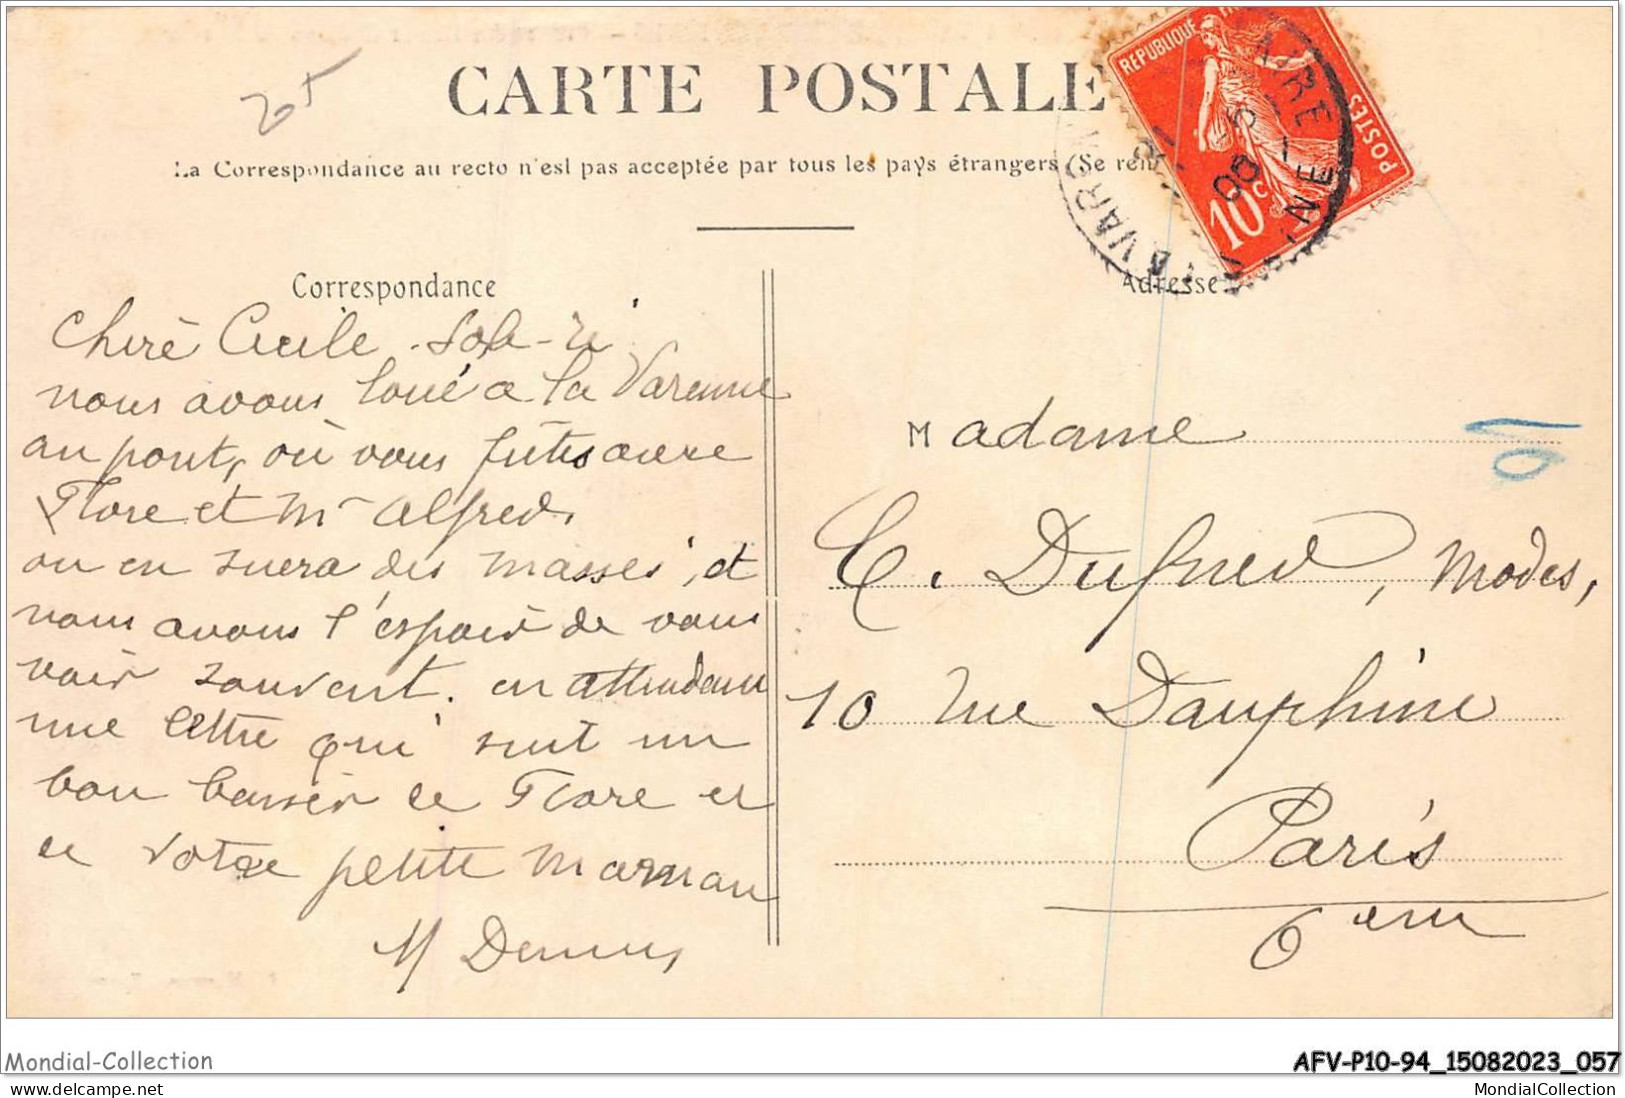 CARTE POSTALE
La Correspondance au recto n'est pas acceptée par tous les pays étrangers (Se ren
RÉPUBLIQUE
POSTES
10c
Correspondance
Adresse
Chère Cécile
nous avons loué a la Varenne
au pont, où vous fûtes avec
Flore et Mr alfred.
on en suera des masses, et
nous avons l'espoir de vous
voir souvent. en attendant
une lettre qui suit un
bon baiser de Flore et
de votre petite maman
M
Madame
C. , Modes,
10 rue Dauphine
Paris
6em
Mondial-Collection
AFV-P10-94_15082023_057
www.delcampe.net
MondialCollection